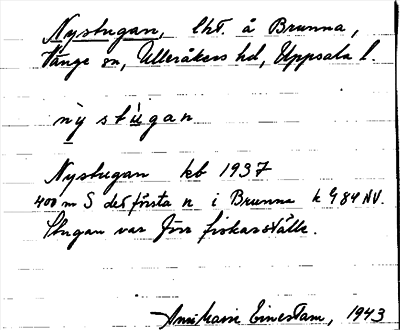 Nystugan, lht. å Brunna,
Vänge sn, Ulleråkers hd, Uppsala l.
nỳ stù̱gan
Nystugan kb 1937
400 m S det första n i Brunna k 984 NV.
Stugan var förr fiskarställe.
Annmarie Einestam, 1943